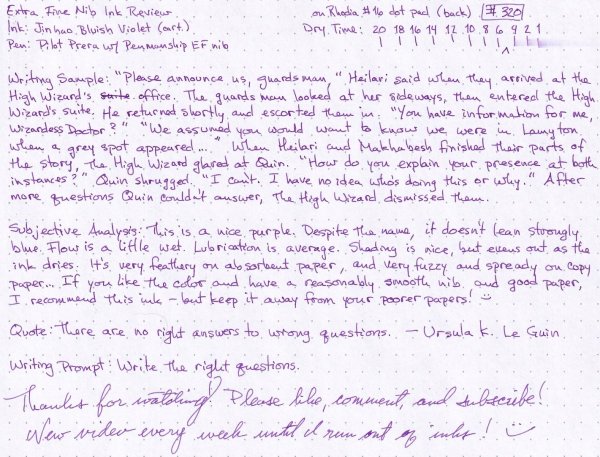 Extra Fine Nib Ink Review
on Rhodia #16 dot pad (back) #320
Ink: Jinhao Bluish Violet (cart.)
Dry Time: 20 18 16 14 12 10 8 6 4 2 1
Pen: Pilot Prera w/ Penmanship EF nib
Writing Sample: "Please announce us, guardsman," Heilari said when they arrived at the
High Wizard's suite office. The guardsman looked at her sideways, then entered the High
Wizard's suite. He returned shortly and escorted them in. "You have information for me,
Wizardess Doctor?" "We assumed you would want to know we were in Lamyton
when a grey spot appeared..." When Heilari and Makhabesh finished their parts of
the story, the High Wizard glared at Quin. "How do you explain your presence at both
instances?" Quin shrugged. "I can't. I have no idea who's doing this or why." After
more questions Quin couldn't answer, The High Wizard dismissed them.
Subjective Analysis: This is a nice purple. Despite the name, it doesn't lean strongly
blue. Flow is a little wet. Lubrication is average. Shading is nice, but evens out as the
ink dries. It's very feathery on absorbent paper, and very fuzzy and spready on copy
paper... If you like the color and have a reasonably smooth nib and good paper,
I recommend this ink – but keep it away from your poorer papers!
Quote: There are no right answers to wrong questions. — Ursula K. Le Guin
Writing Prompt: Write the right questions.
Thanks for watching! Please like, comment, and subscribe!
New video every week until I run out of inks!